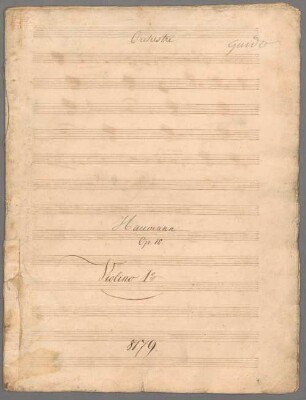 Orchestre
Haumann
Op. 10.
Violino 1º
8179.